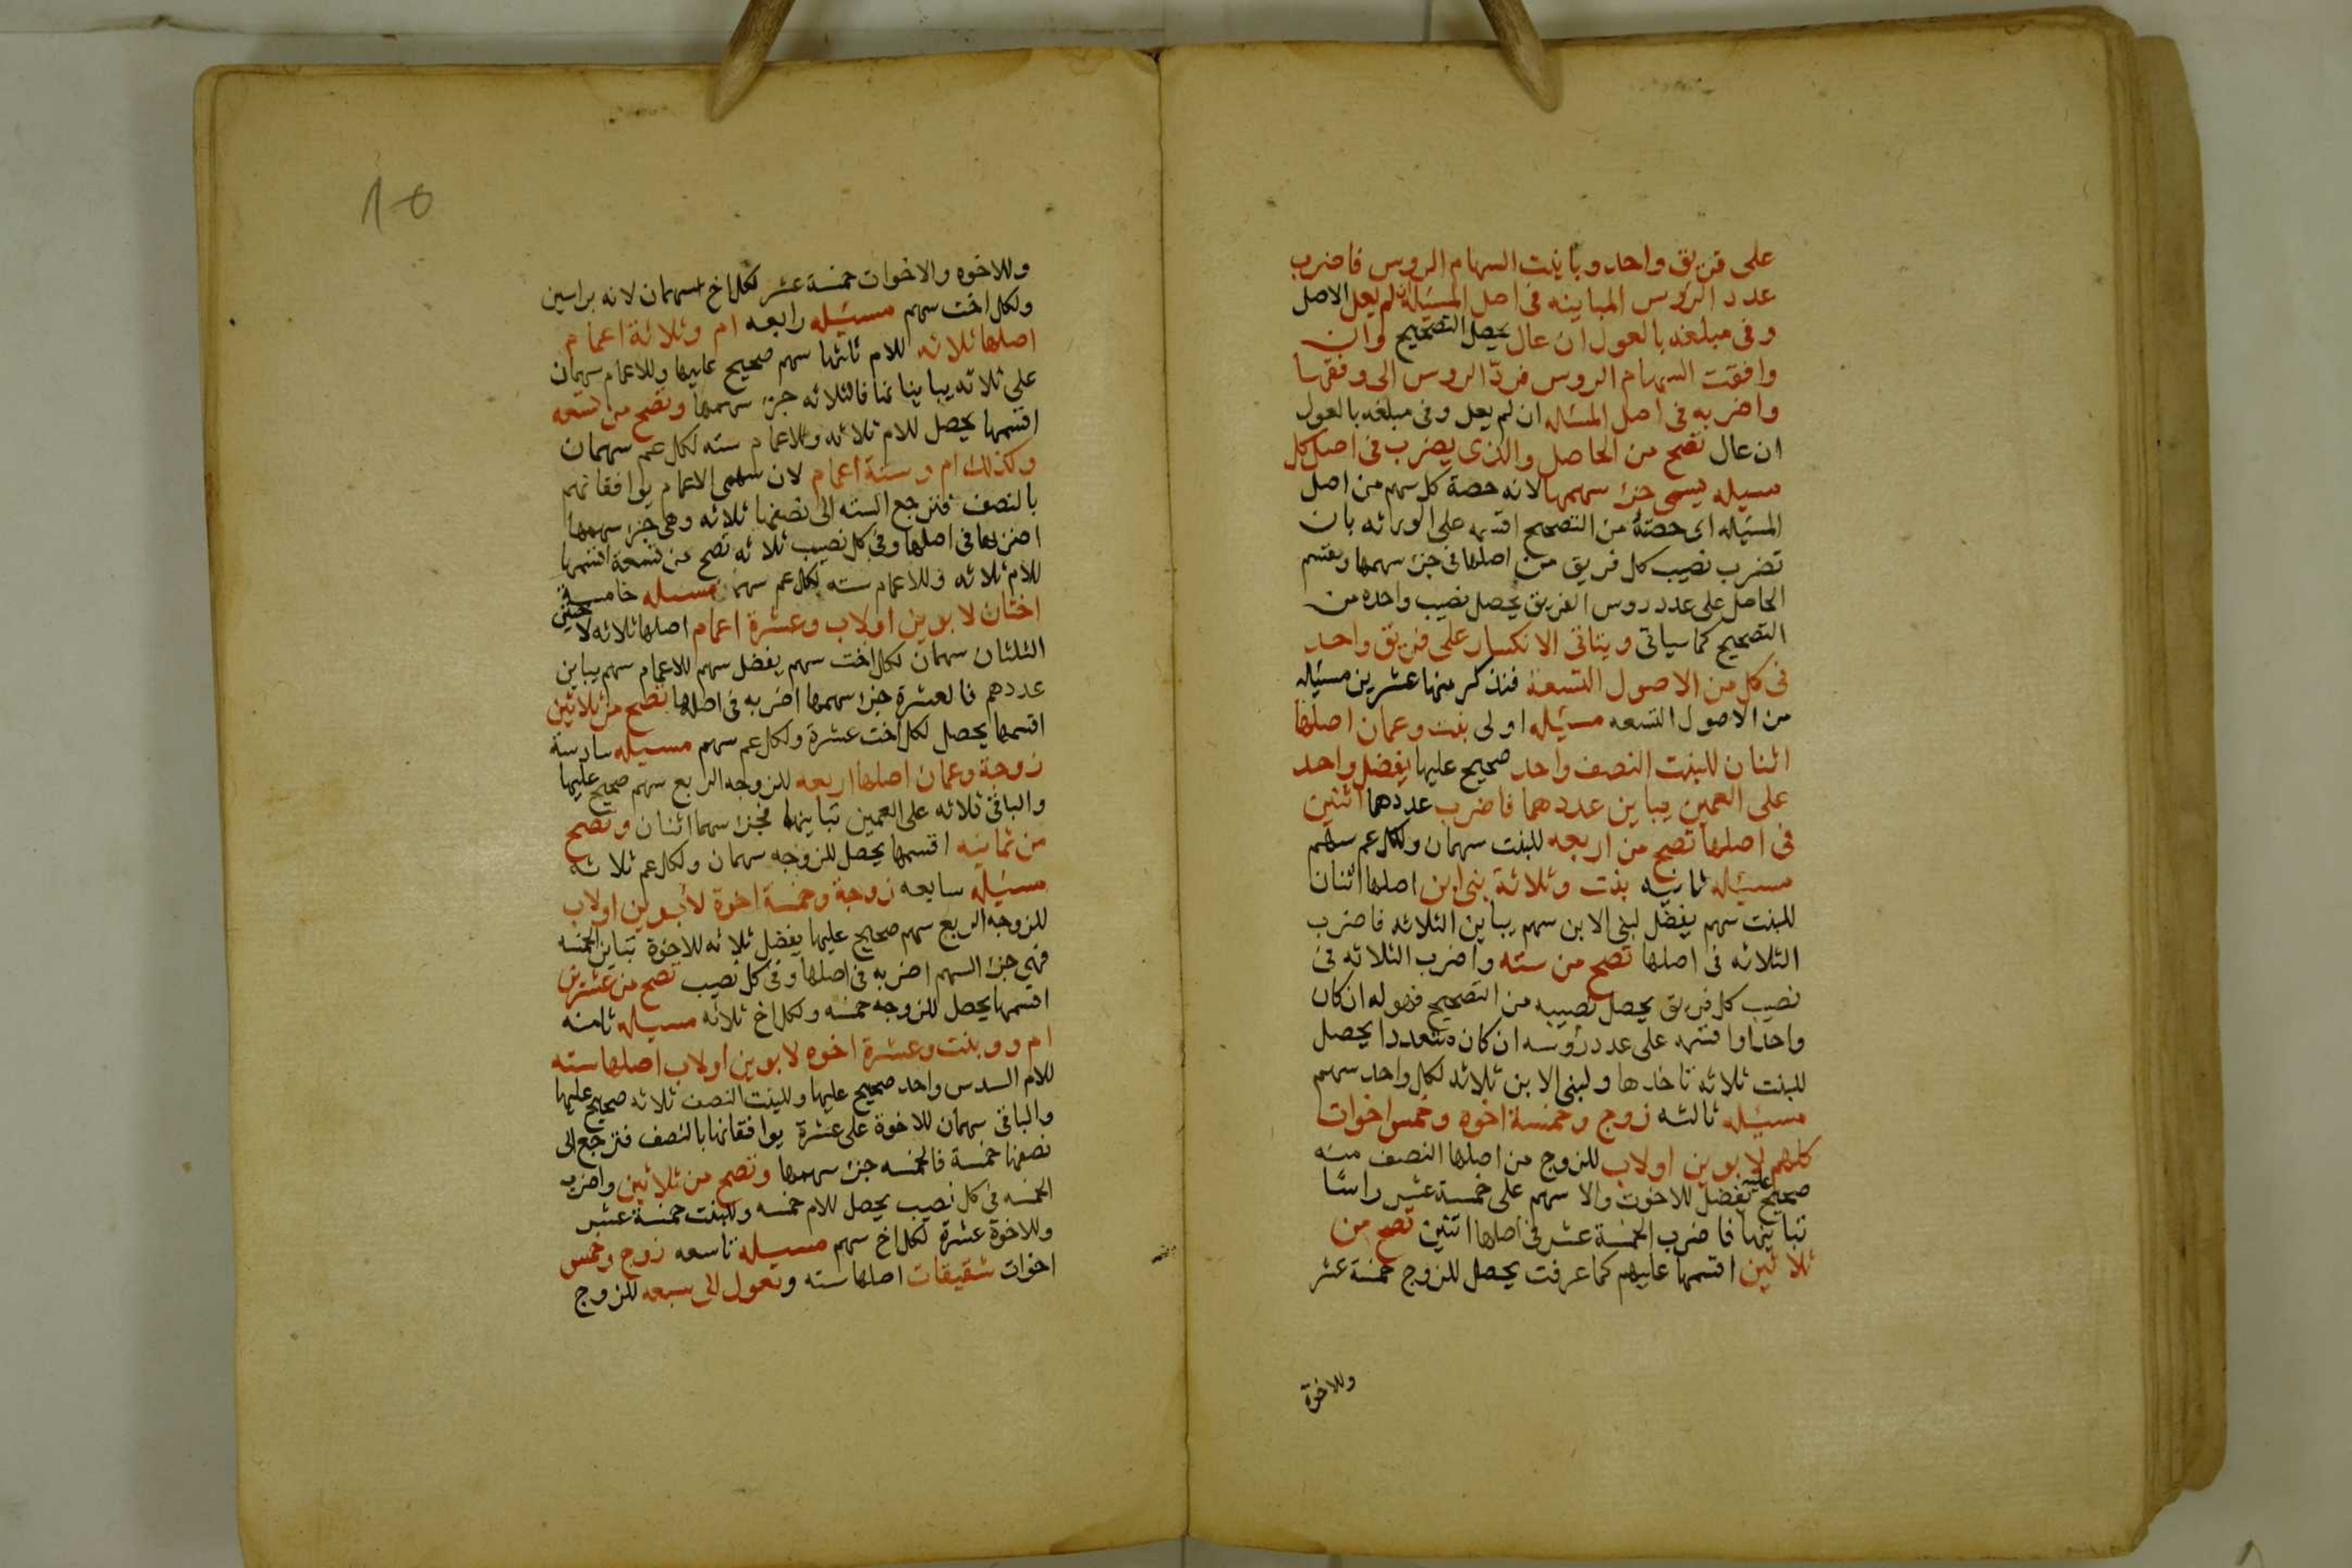 على فريق واحد وباينت السهام الروس فاضرب
عدد الروس المباينه فى اصل المسئلة ان لم يعل الاصل
وفى مبلغه بالعول ان عال يحصل التصحيح وان
وافقت السهام الروس فردّ الروس الى وفقها
واضربه فى اصل المسئاله ان لم يعل وفى مبلغه بالعول
ان عال تصح من الحاصل والذى يضرب فى اصل كل
مسيله يسمى جزء سهمها لانه حصة كل سهم من اصل
المسئيله اى حصته من التصحيح اقسمه على الورثه بان
تضرب نصيب كل فريق من اصلها فى جزء سهمها وتقسم
الحاصل على عدد روس الفريق يحصل نصيب واحده من
التصحيح كما سياتى ويتاتى الانكسار على فريق واحد
فى كل من الاصول التسعة فنذكر منها عشرين مسئيله
من الاصول التسعه مسئيله اولى بنت وعمان اصلها
اثنان للبنت النصف واحد صحيح عليها يفضل واحد
على العمين يباين عددهما فاضرب عددهما اثنين
فى اصلها تصح من اربعه للبنت سهمان ولكل عم سهم
مسئيله ثانيه بنت وثلاثة بنى ابن اصلها اثنان
للبنت سهم يفضل لبنى الابن سهم يباين الثلاثه فاضرب
الثلاثه فى اصلها تصح من سته واضرب الثلاثه فى
نصيب كل فريق يحصل نصيبه من التصحيح فهو له ان كان
واحدا واقسمه على عدد رؤسه ان كان متعددا يحصل
للبنت ثلاثه تاخذها ولبنى الابن ثلاثه لكل واحد سهم
مسئيله ثالثه زوج وخمسة اخوه وخمس اخوات
كلهم لابوين اولاب للزوج من اصلها النصف منه
صحيح عليه يفضل للاخوت والا سهم على خمسة عشر راسًا
تباينها فاضرب الخمسة عشر فى اصلها اثنين تصح من
ثلاثين اقسمها عليهم كما عرفت يحصل للزوج خمسة عشر
وللاخوة
10
وللاخوه والاخوات خمسة عشر لكل اخ سهمان لانه براسين
ولكل اخت سهم مسئيله رابعه ام وثلاثة اعمام
اصلها ثلاثه للام ثلثها سهم صحيح عليها وللاعمام سهمان
على ثلاثه يباينانها فالثلاثه جزء سهمها وتصح من تسعه
اقسمها يحصل للام ثلاثه وللاعمام سته لكل عم سهمان
وكذلك ام وستة اعمام لان سهمى الاعمام يوافقانهم
بالنصف فترجع السته الى نصفها ثلاثه وهى جزء سهمها
اضربها فى اصلها وفى كل نصيب ثلاثه تصح من تسعة اقسمها
للام ثلاثه وللاعمام سته لكل عم سهمان مسيله خامسة
اختان لابوين اولاب وعشرة اعمام اصلها ثلاثه لاختين
الثلثان سهمان لكل اخت سهم يفضل سهم للاعمام سهم يباين
عددهم فالعشرة جزء سهمها اضربه فى اصلها تصح من ثلاثين
اقسمها يحصل لكل اخت عشرة ولكل عم سهم مسيله سادسة
زوجة وعمان اصلها اربعه للزوجه الربع سهم صحيح عليها
والباقى ثلاثه على العمين تباينهما فجزء سهمها اثنان وتصح
من ثمانيه اقسمها يحصل للزوجه سهمان ولكل عم ثلاثه
مسئيله سابعه زوجة وخمسة اخوة لابوين اولاب
للزوجه الربع سهم صحيح عليها يفضل ثلاثه للاخوة تباين الخمسه
فهى جزء السهم اضربه فى اصلها وفى كل نصيب تصح من عشرين
اقسمها يحصل للزوجه خمسه ولكل اخ ثلاثه مسيله ثامنه
ام وو بنت وعشرة اخوه لابوين اولاب اصلها سته
للام السدس واحد صحيح عليها وللبنت النصف ثلاثه صحيح عليها
والباقى سهمان للاخوة على عشرة يوافقانها بالنصف فترجع الى
نصفها خمسة فالخمسه جزء سهمها وتصح من ثلاثين واضرب
الخمسه فى كل نصيب يحصل للام خمسه وللبنت خمسة عشر
وللاخوة عشرة لكل اخ سهم مسيله تاسعه زوج وخمس
اخوات شقيقات اصلها سته وتعول الى سبعه للزوج